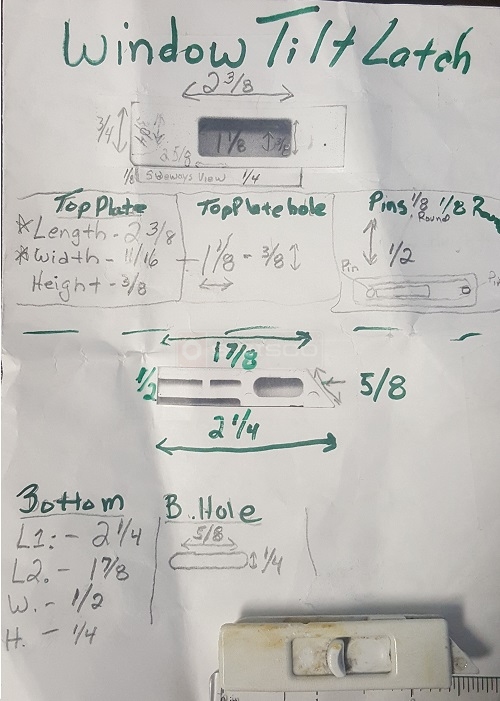 Window Tilt Latch
2 3/8
3/4
1 1/8
3/8
2 5/8
1/8 Sideways View 1/4
Top Plate
*Length - 2 3/8
*Width - 11/16
Height - 3/8
Top Plate hole
1 1/8 - 3/8
Pins 1/8 1/8 Roun
Round
1/2
Pin
Pi
1 7/8
1/2
5/8
2 1/4
Bottom
L1: - 2 1/4
L2. - 1 7/8
W. - 1/2
H. - 1/4
B. Hole
5/8
1/4